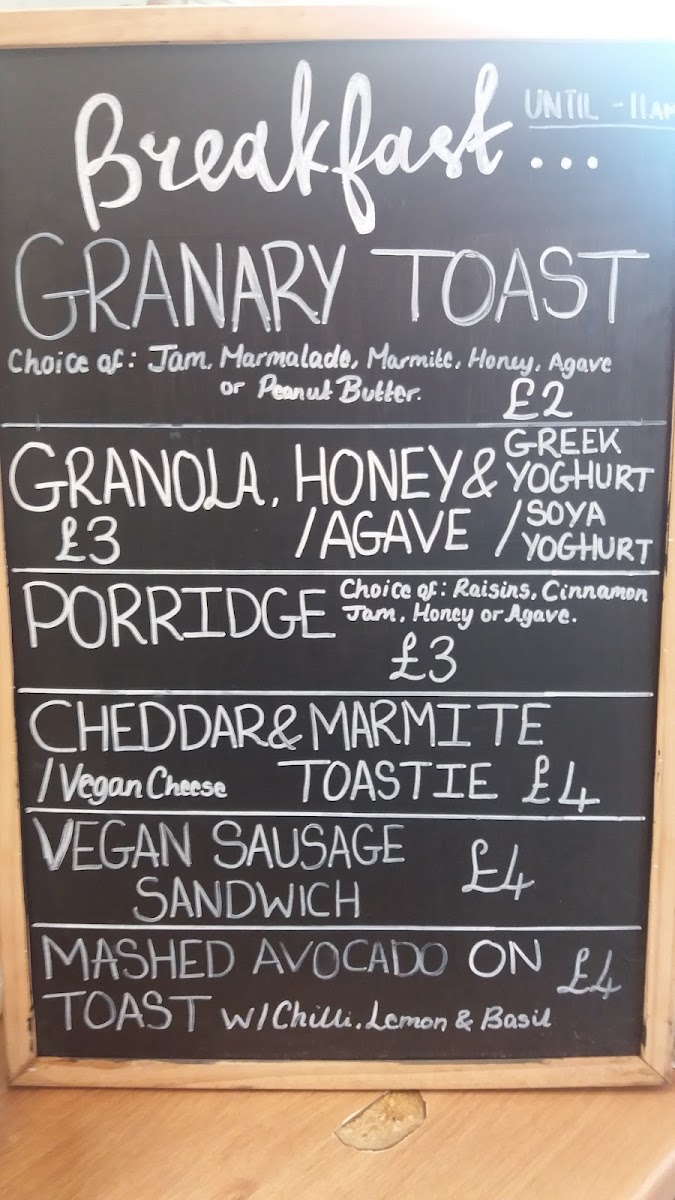 UNTIL - 11AM
Breakfast...
GRANARY TOAST
Choice of: Jam, Marmalade, Marmite, Honey, Agave
or Peanut Butter.
£2
GRANOLA, HONEY & GREEK YOGHURT
£3 /AGAVE / SOYA YOGHURT
PORRIDGE Choice of: Raisins, Cinnamon
Jam, Honey or Agave.
£3
CHEDDAR & MARMITE
/Vegan Cheese TOASTIE £4
VEGAN SAUSAGE £4
SANDWICH
MASHED AVOCADO ON £4
TOAST w/Chilli, Lemon & Basil